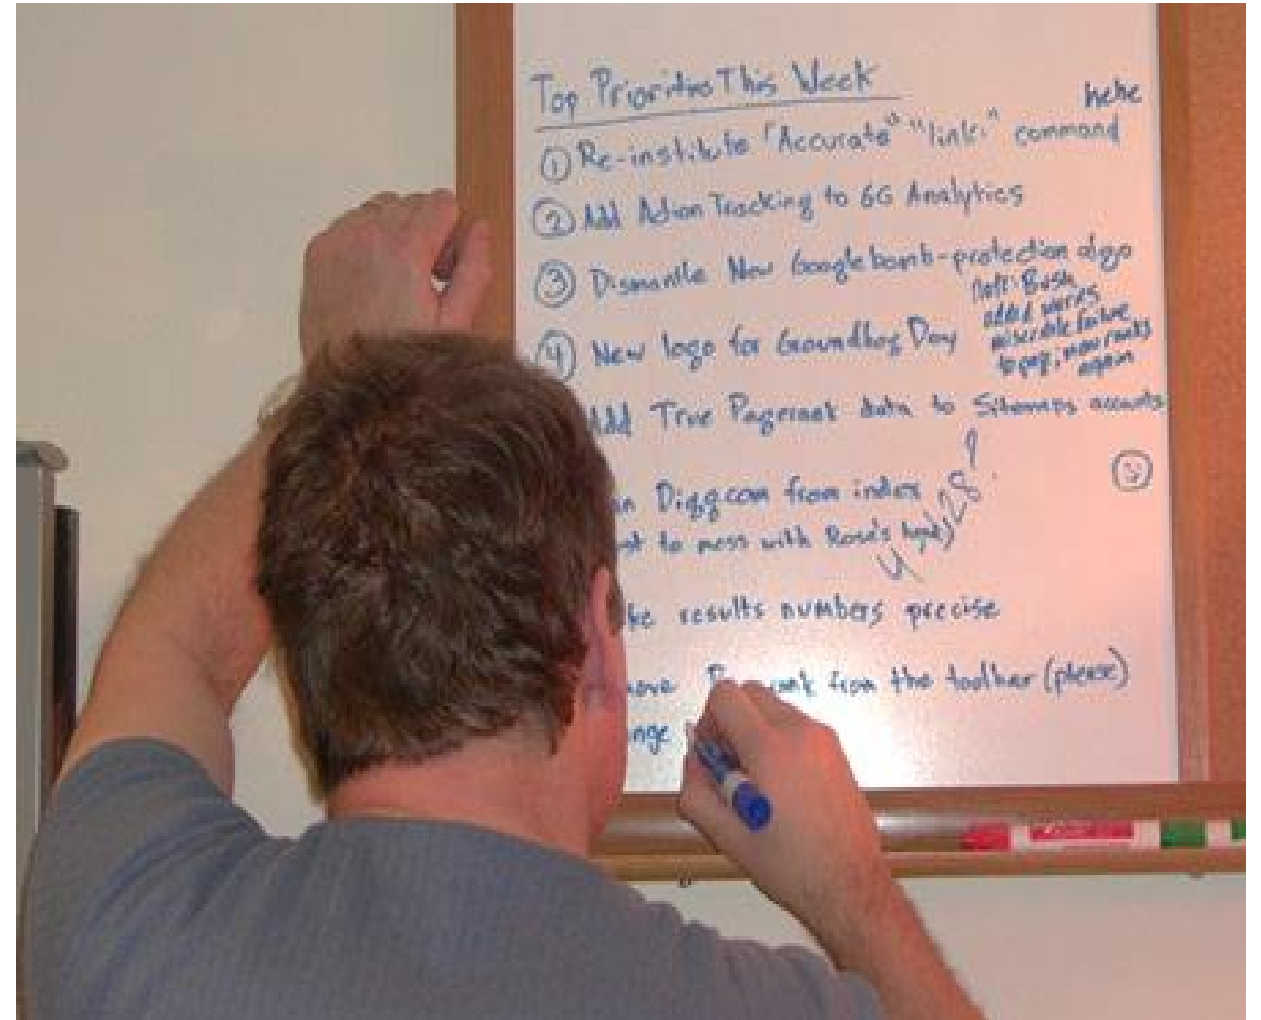 Top Priorities This Week
hehe
① Re-institute "Accurate" "link:" command
② Add Action Tracking to GG Analytics
③ Dismantle New Googlebomb-protection algo
Note: Bush
added words
miserable failure
to pg; now ranks
again
④ New logo for Groundhog Day
Add True Pagerank data to Sitemaps accounts
an Digg.com from index
st to mess with Rose's head)
28?
ke results numbers precise
move from the toolbar (please)
nge